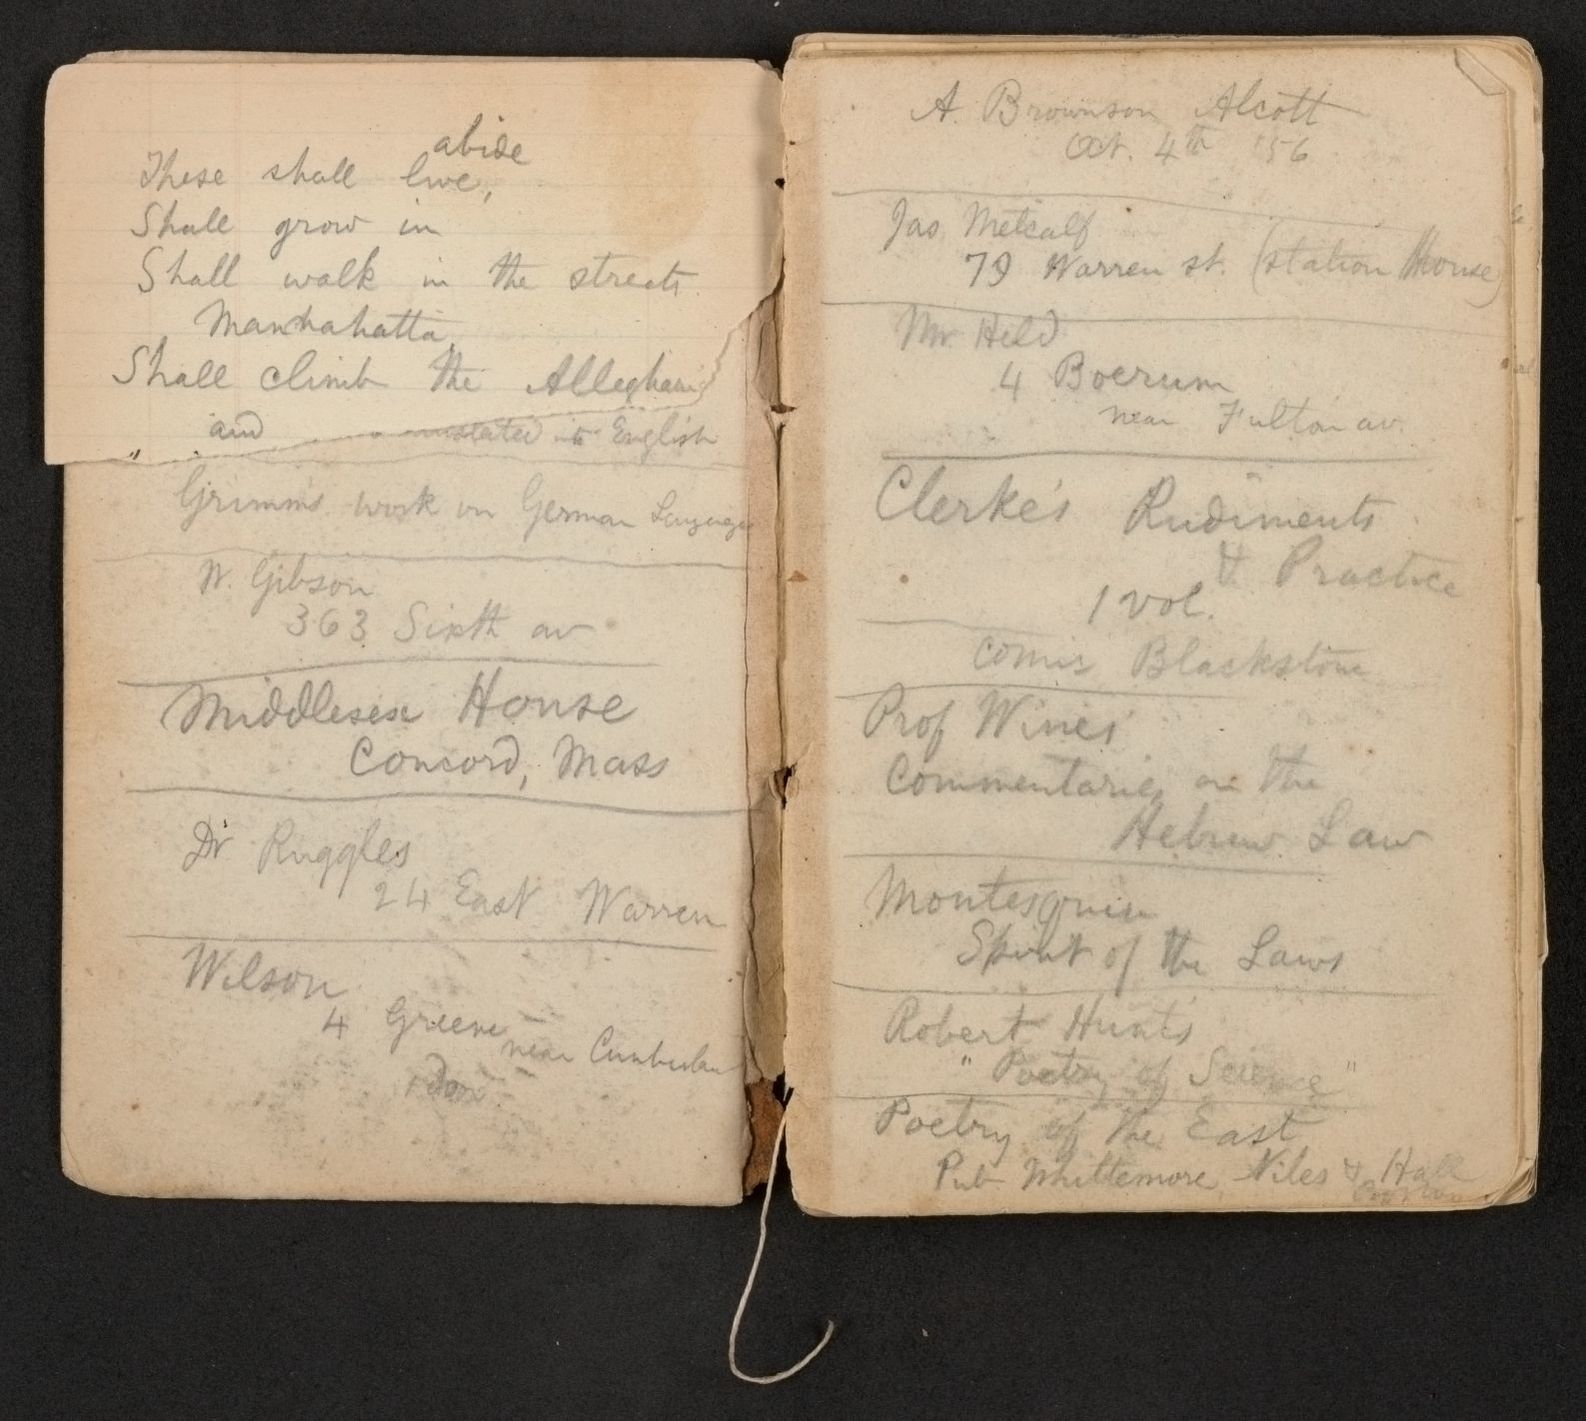 abide
These shall live,
Shall grow in
Shall walk in the streets
Manhahatta,
Shall climb the Alleghani
and
translated into English
Grimm's work on German Language
W. Gibson
363 Sixth av
Middlesex House
Concord, Mass
Dr Ruggles
24 East Warren
Wilson
4 Greene
near Cumberlan
A. Bronnson Alcott
Oct. 4th '56
Jas Metcalf
79 Warren st. (station House)
Mr. Held
4 Boerum
near Fulton av.
Clerke's Rudiments
& Practice
1 vol.
comes Blackstone
Prof Wines'
Commentaries on the
Hebrew Law
Montesquieu
Spirit of the Laws
Robert Hunt's
"Poetry of Science"
Poetry of the East
Pub Whittemore Niles & Hall
Boston